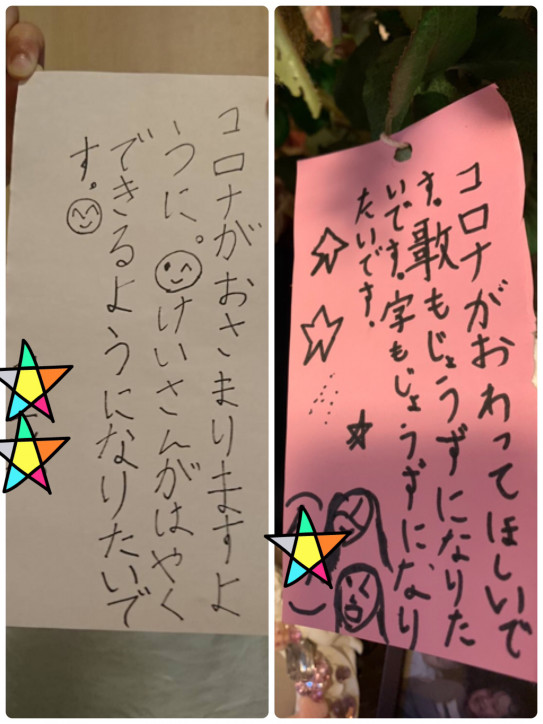 コロナがおさまりますよ
うに。けいさんがはやく
できるようになりたいで
す。
コロナがおわってほしいで
す。歌もじょうずになりた
いです。字もじょうずになり
たいです。